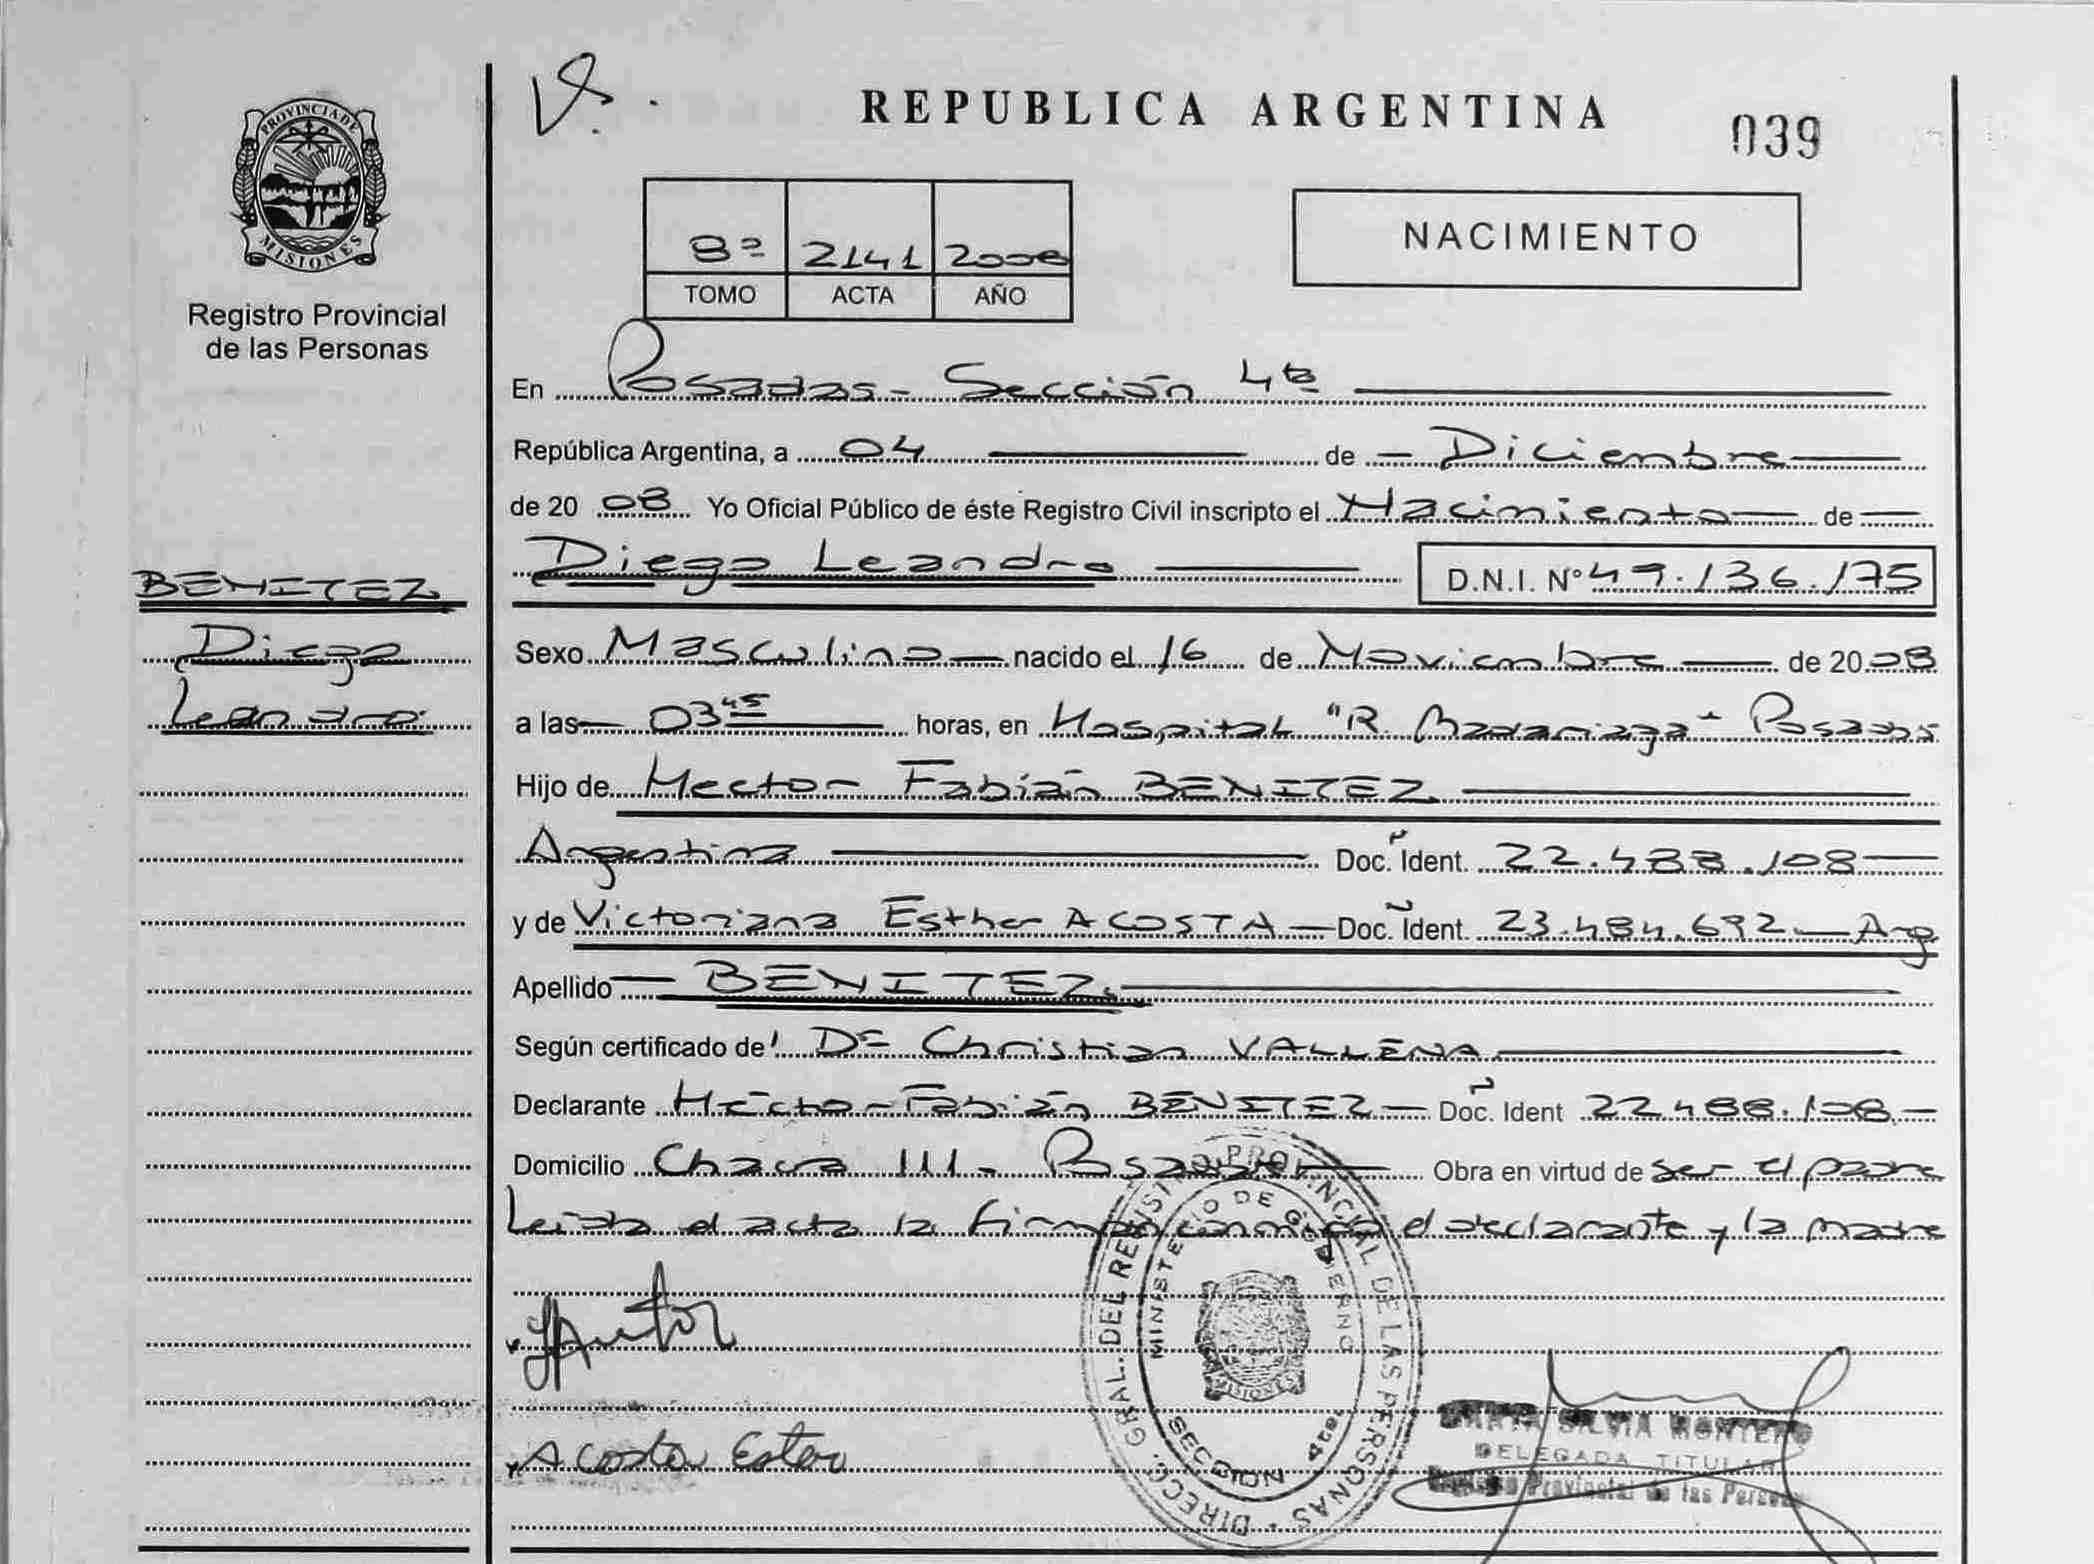 PROVINCIA DE
MISIONES
Registro Provincial
de las Personas
BENITEZ
Diego
Leandro
REPUBLICA ARGENTINA
039
8º 2141 2008
TOMO ACTA AÑO
NACIMIENTO
En Posadas - Sección 4ta
República Argentina, a 04 de Diciembre
de 20 08 Yo Oficial Público de éste Registro Civil inscripto el Nacimiento de
Diego Leandro D.N.I. Nº 49.136.175
Sexo Masculino nacido el 16 de Noviembre de 20 08
a las 03 45 horas, en Hospital "R. Madariaga" - Posadas
Hijo de Hector Fabián BENITEZ
Argentina Doc. Ident. 22.488.108
y de Victoriana Esther ACOSTA Doc. Ident. 23.484.692 Arg
Apellido BENITEZ
Según certificado de Dr Christian VALLENA
Declarante Hector Fabián BENITEZ Doc. Ident 22.488.108
Domicilio Chacra 111 - Posadas Obra en virtud de ser el padre
Leída el acta la firman conmigo el declarante y la madre
DIRECC. GRAL. DEL REGISTRO PROVINCIAL DE LAS PERSONAS
MINISTERIO DE GOBIERNO
MISIONES
SECCION 4ta.
Acosta Ester
SILVIA MONTERO
DELEGADA TITULAR
Registro Provincial de las Personas